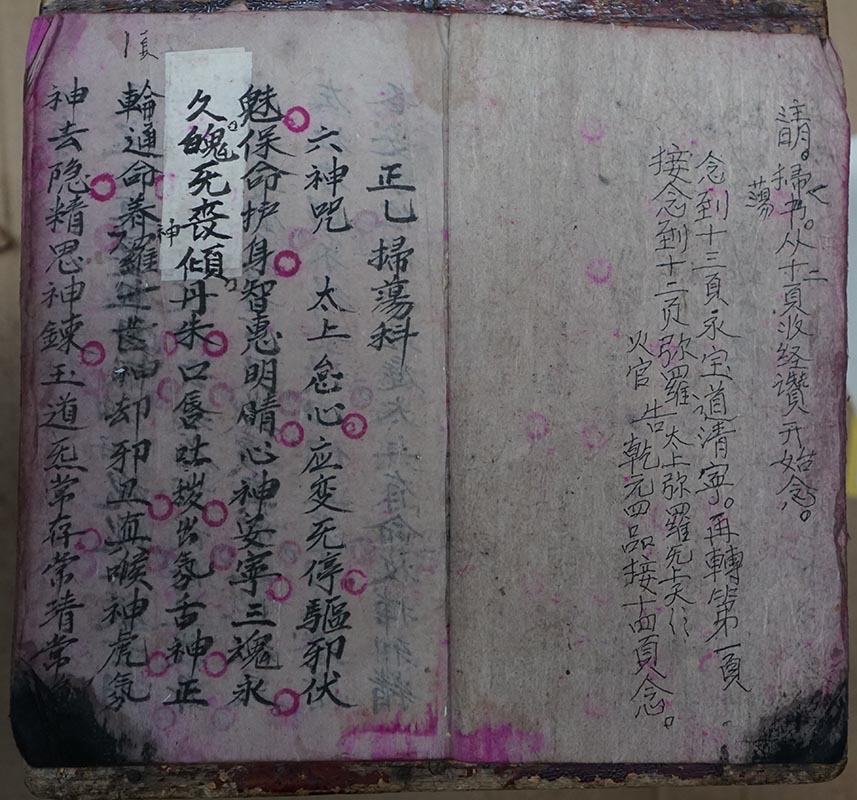 注明。掃蕩书。从十二頁收经讚开始念。
念到十三頁永宝道清寧。再轉第一頁
接念到十二页弥羅太上弥羅无上天仁
火官告乾元四品接十四頁念。
正乙掃蕩科
六神咒 太上台心应变死停驅邪伏
魅保命护身智惠明晴心神安寧三魂永
久魄死喪傾丹朱口唇吐拨出氛舌神正
神
輪通命养羅 神却邪丑真喉神虎氛
神去隐精思神鍊玉道炁常存常